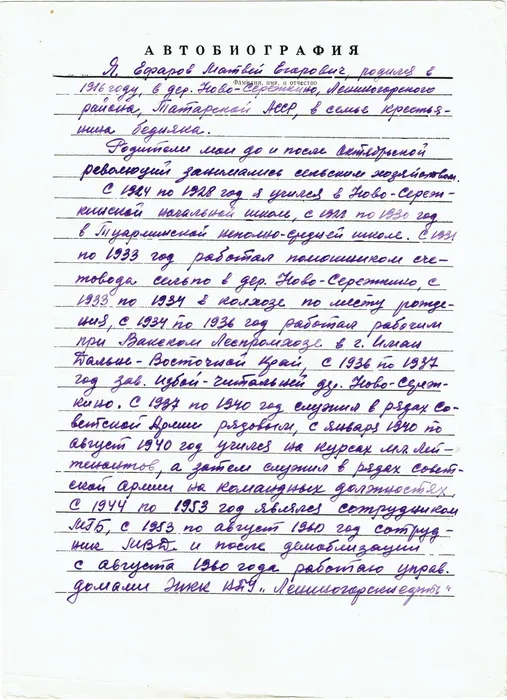 АВТОБИОГРАФИЯ
Фамилия, имя, отчество
Я, Ефаров Матвей Егорович, родился в
1916 году, в дер. Ново-Сережкино, Лениногорского
района, Татарской АССР, в семье крестья-
нина бедняка.
Родители мои до и после Октябрьской
революции занимались сельским хозяйством.
С 1924 по 1928 год я учился в Ново-Сереж-
кинской начальной школе, с 1928 по 1930 год
в Туарминской неполно-средней школе. С 1931
по 1933 год работал помошником сче-
товода сельпо в дер. Ново-Сережкино, с
1933 по 1934 в колхозе по месту рожде-
ния, с 1934 по 1936 год работал рабочим
при Вакском Леспромхозе в г. Иман
Дальне-Восточной край, с 1936 по 1937
год зав. избой-читальней дер. Ново-Сереж-
кино. С 1937 по 1940 год служил в рядах Со-
ветской Армии рядовым, с января 1940 по
август 1940 год учился на курсах мл. лей-
тенантов, а затем служил в рядах совет-
ской армии на командных должностях,
С 1944 по 1953 год являлся сотрудником
МГБ, с 1953 по август 1960 год сотруд-
ник МВД. и после демоблизации
с августа 1960 года работаю управ.
домами ЖКК НПУ „Лениногорскнефть"